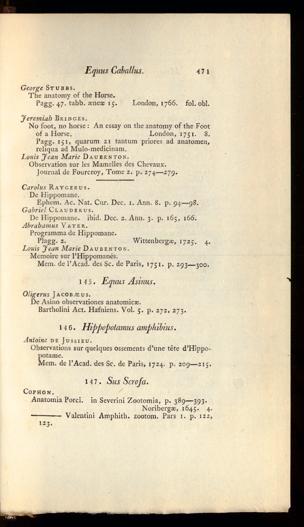 Equus Caballus. 471
George STUBBS.
The anatomy of the Horse.
Pagg. 47. tabb. æneæ 15. London, 1766. fol. obl.
Jeremiah BRIDGES.
No foot, no horse: An essay on the anatomy of the Foot
of a Horse. London, 1751. 8.
Pagg. 151, quarum 21 tantum priores ad anatomen,
reliqua ad Mulo-medicinam.
Louis Jean Marie DAUBENTON.
Observation sur les Mamelles des Chevaux.
Journal de Fourcroy, Tome 2. p. 274—279.
Carolus RAYGERUS.
De Hippomane.
Ephem. Ac. Nat. Cur. Dec. 1. Ann. 8. p. 94—98.
Gabriel CLAUDERUS.
De Hippomane. ibid. Dec. 2. Ann. 3. p. 165, 166.
Abrahamus VATER.
Programma de Hippomane.
Plagg. 2. Wittenbergæ, 1725. 4.
Louis Jean Marie DAUBENTON.
Memoire sur l'Hippomanés.
Mem. de l'Acad. des Sc. de Paris, 1751. p. 293—300.
145. Equus Asinus.
Oligerus JACOBÆUS.
De Asino observationes anatomicæ.
Bartholini Act. Hafniens. Vol. 5. p. 272, 273.
146. Hippopotamus amphibius.
Antoine DE JUSSIEU.
Observations sur quelques ossements d'une tête d'Hippo-
potame.
Mem. de l'Acad. des Sc. de Paris, 1724. p. 209—215.
147. Sus Scrofa.
COPHON.
Anatomia Porci. in Severini Zootomia, p. 389—393.
Noribergæ, 1645. 4.
——— Valentini Amphith. zootom. Pars 1. p. 122,
123.